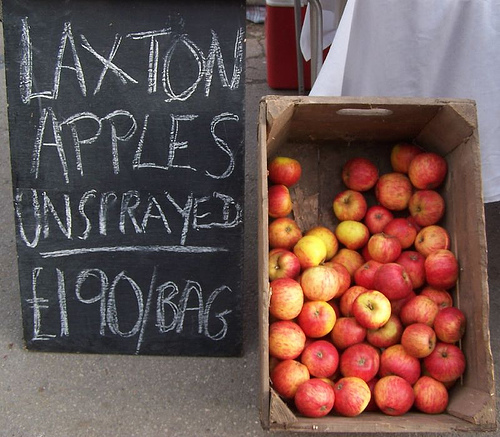 LAXTON
APPLES
UNSPRAYED
£190/BAG